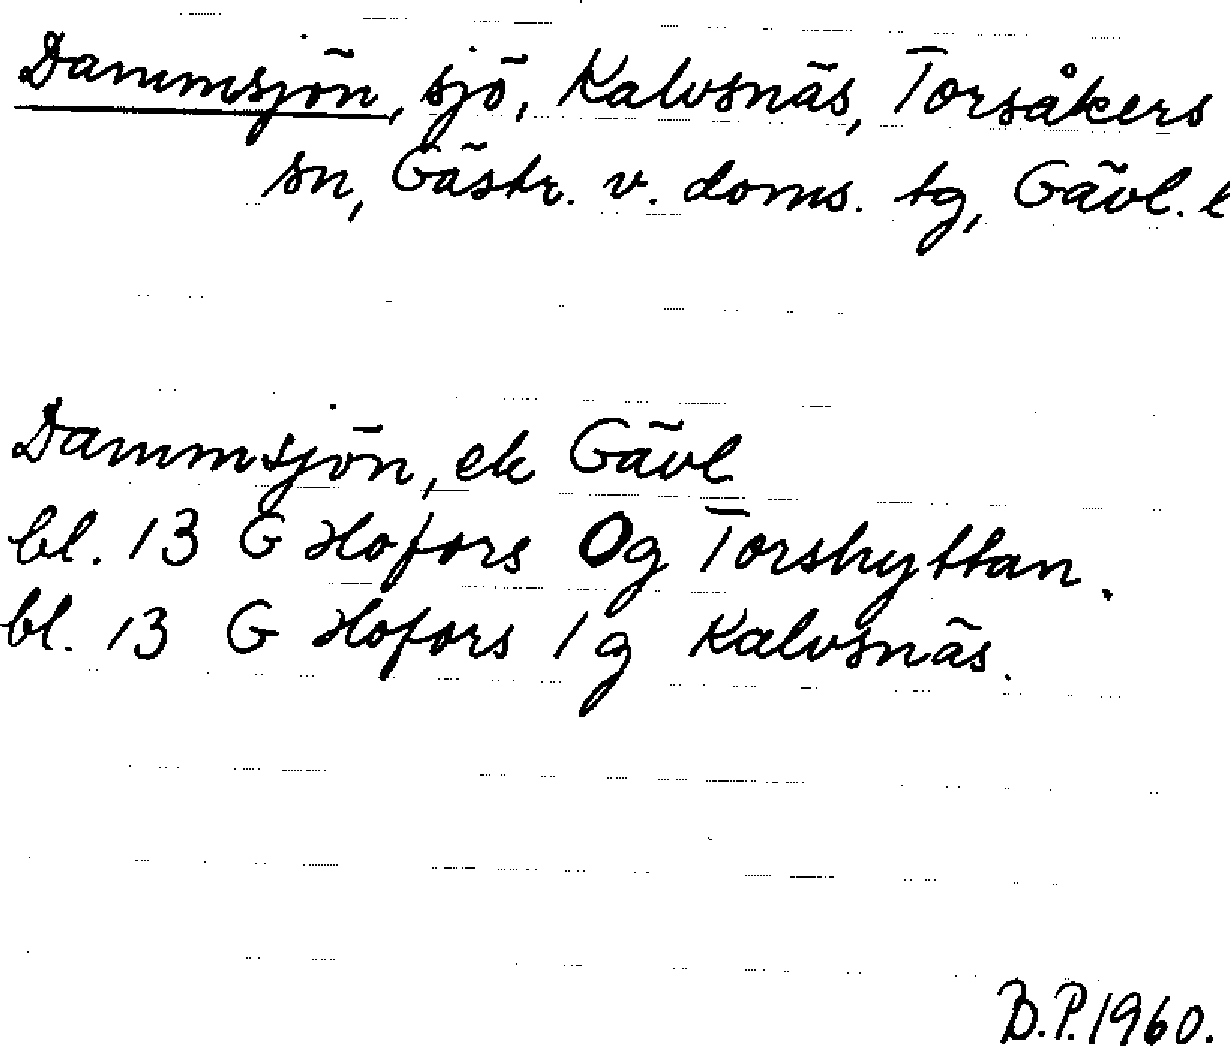 Dammsjön, sjö, Kalvsnäs, Torsåkers
sn, Gästr. v. doms. tg, Gävl. l
Dammsjön, ek Gävl.
bl. 13 G Hofors 0g Torshyttan.
bl. 13 G Hofors 1g Kalvsnäs.
B.P. 1960.